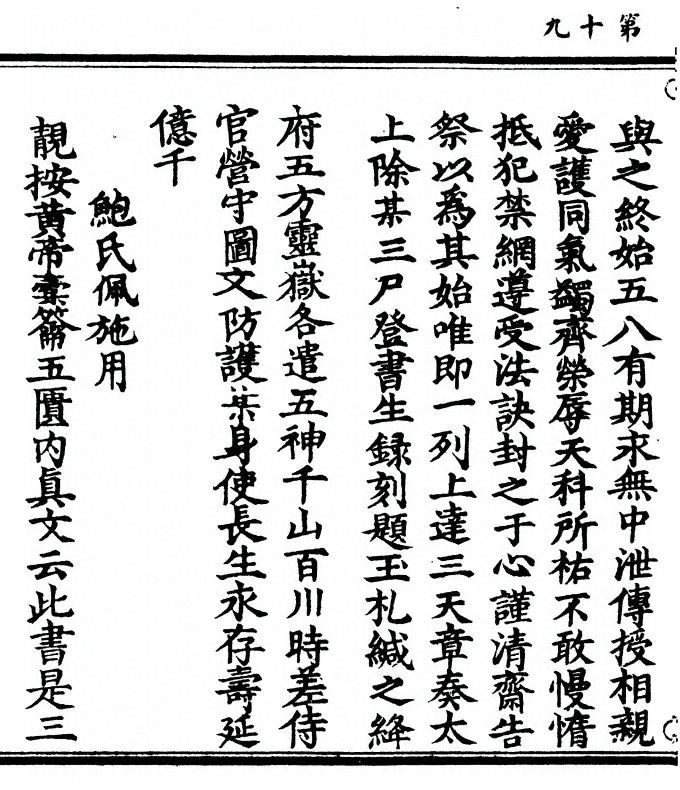 第十九
與之終始五八有期求無中泄傳授相親
愛護同氣蠲齊榮辱天科所祐不敢慢惰
抵犯禁網遵受法訣封之于心謹清齋告
祭以爲其始唯即一列上達三天章奏太
上除某三尸登書生録刻題玉札緘之絳
府五方靈嶽各遣五神千山百川時差侍
官營守圖文防護某身使長生永存壽延
億千
鮑氏佩施用
靚按黃帝橐籥五匱內眞文云此書是三